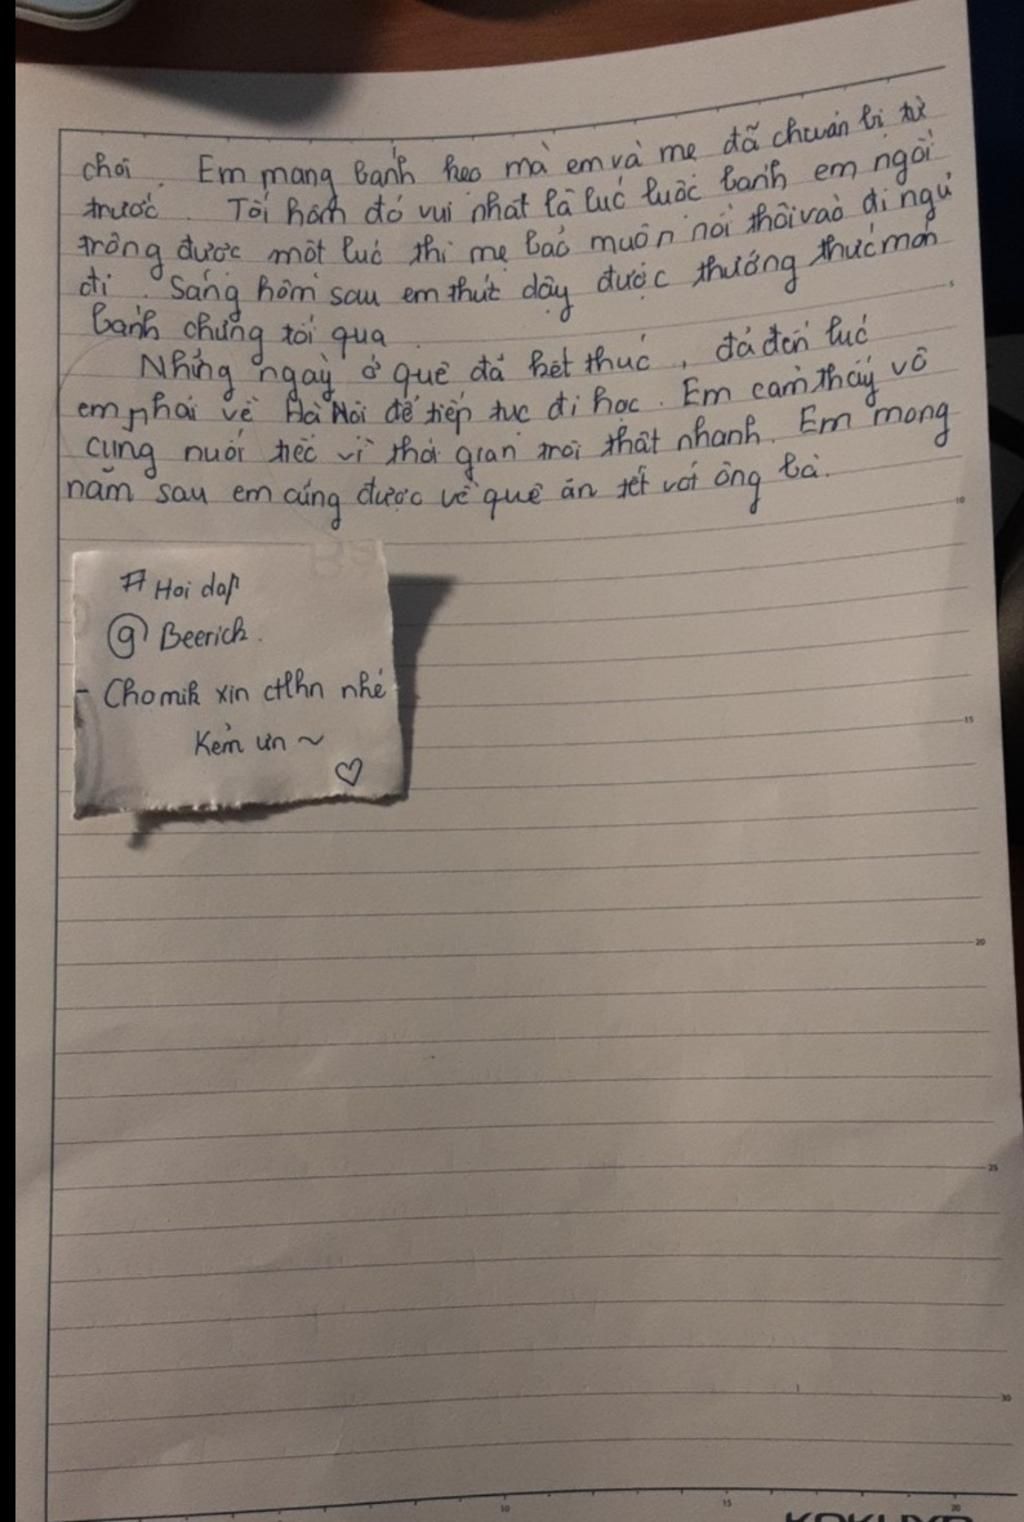 chơi. Em mang bánh kẹo mà em và mẹ đã chuẩn bị từ
trước. Tối hôm đó vui nhất là lúc luộc bánh em ngồi
trông được một lúc thì mẹ bảo muộn rồi thôi vào đi ngủ
đi. Sáng hôm sau em thức dậy được thưởng thức món
bánh chưng tối qua.
Những ngày ở quê đã kết thúc, đã đến lúc
em phải về Hà Nội để tiếp tục đi học. Em cảm thấy vô
cùng nuối tiếc vì thời gian trôi thật nhanh. Em mong
năm sau em cũng được về quê ăn tết với ông bà.
# Hoi dap
@ Beerich.
- Cho mik xin ctlhn nhé
Kẻm ưn ~
♡
5
10
15
20
25
30
10 15 20
KOKUYO